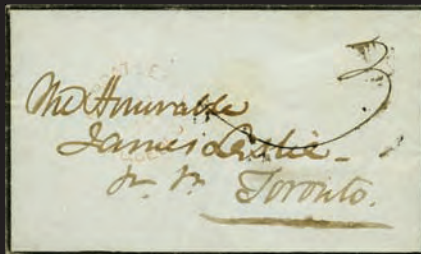 3
The Honorable
James Leslie
Toronto.